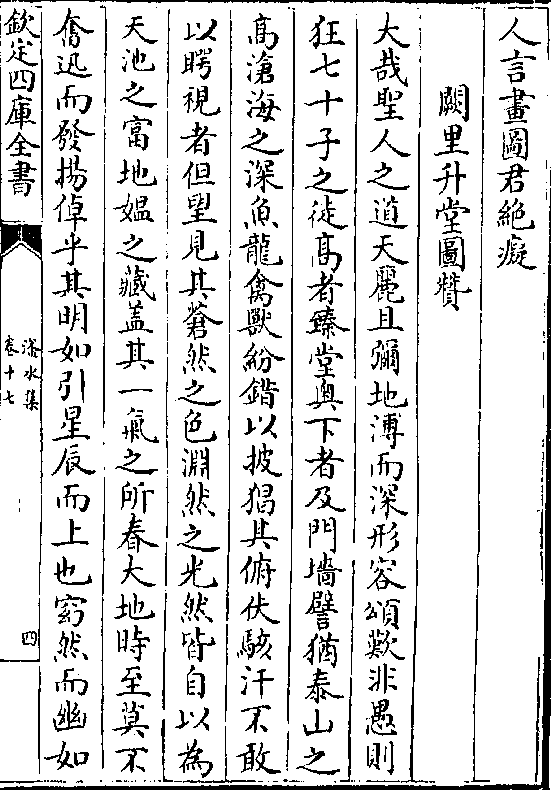 人言畫圖君絶癡
闕里升堂圖贊
大哉聖人之道天麗且彌地溥而深形容頌歎非愚則
狂七十子之徒髙者臻堂奥下者及門墻譬猶泰山之
髙滄海之深魚龍禽獸紛錯以披猖其俯伏駭汗不敢
以睯視者但望見其蒼然之色淵然之光然皆自以為
天池之富地媪之藏盖其一氣之所春大地時至莫不
奮迅而發揚倬乎其明如引星辰而上也窈然而幽如
欽定四庫全書
滏水集
卷十七
四